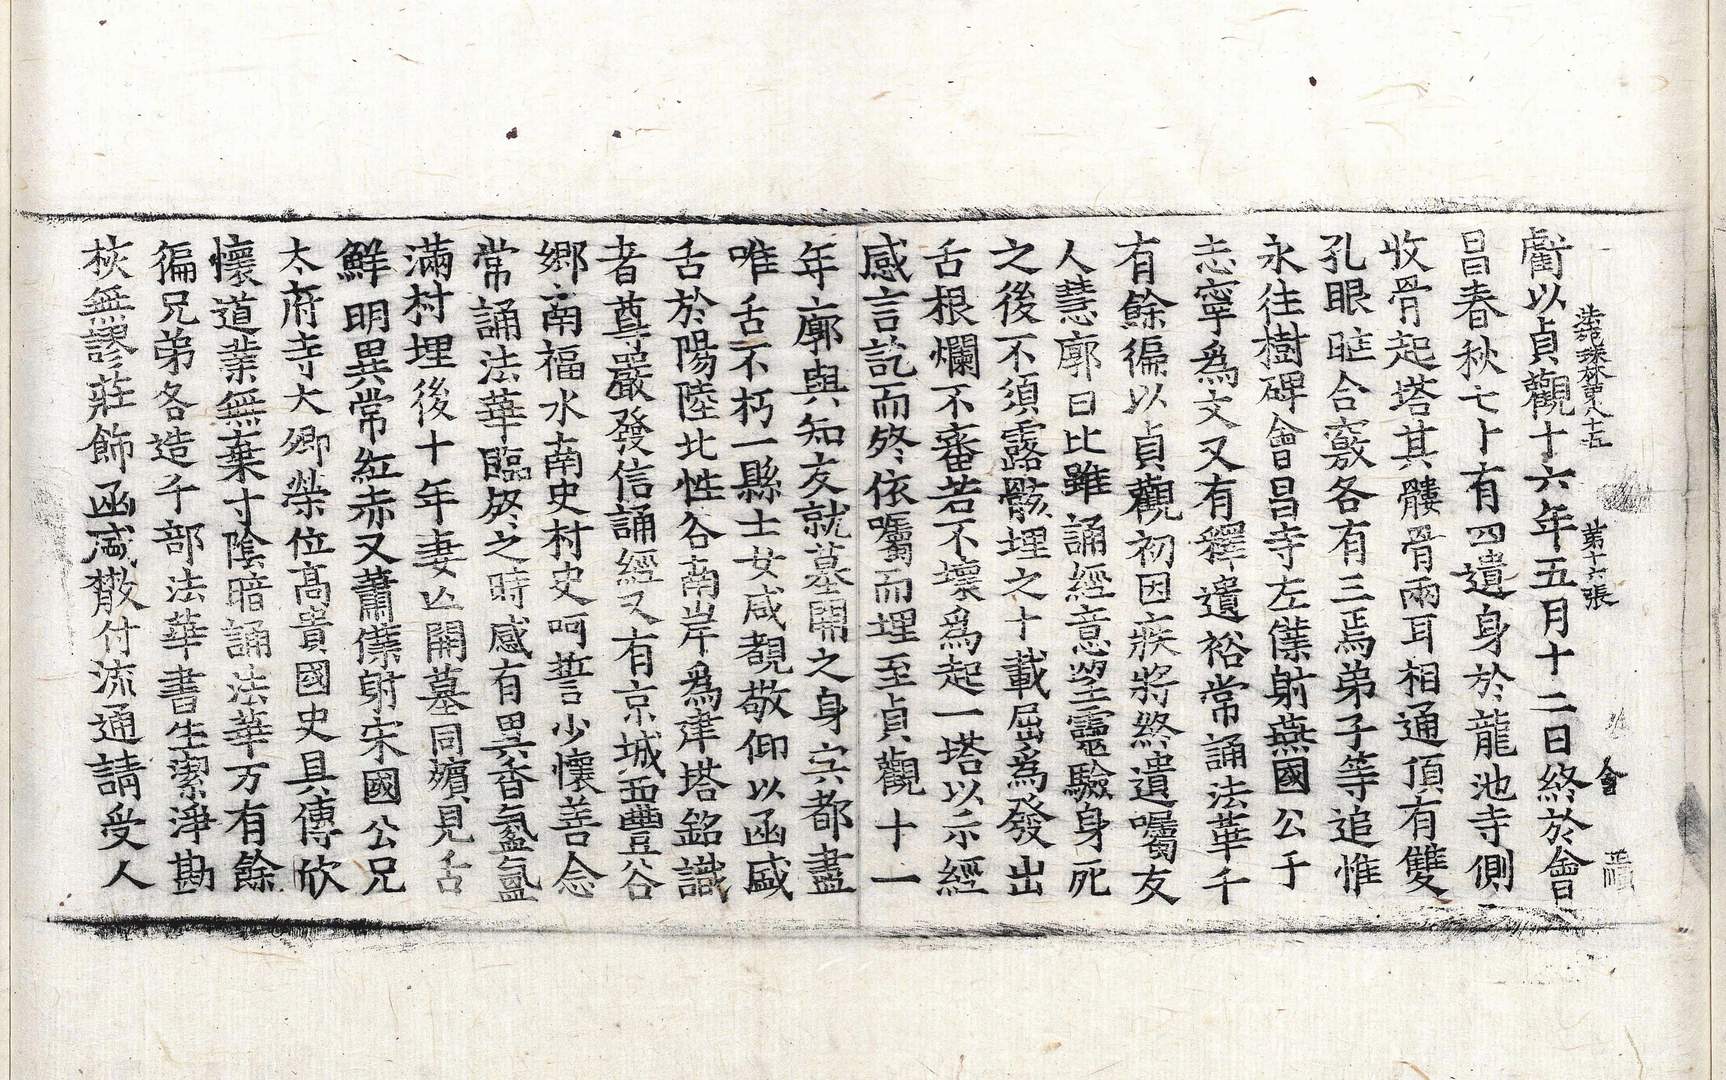 法苑珠林第八十五 第十六張 會
虧以貞觀十六年五月十二日終於會
昌春秋七十有四遺身於龍池寺側
收骨起塔其髏骨兩耳相通頂有雙
孔眼眶合竅各有三焉弟子等追惟
永往樹碑會昌寺左僕射燕國公于
志寧為文又有釋遺裕常誦法華千
有餘徧以貞觀初因疾將終遺囑友
人慧廓曰比雖誦經意望靈驗身死
之後不須露骸埋之十載屈為發出
舌根爛不審若不壞為起一塔以示經
感言訖而終依囑而埋至貞觀十一
年廓與知友就墓開之身宍都盡
唯舌不朽一縣士女咸覩敬仰以函盛
舌於陽陸北性谷南岸為建塔銘識
者尊嚴發信誦經又有京城西豐谷
鄉南福水南史村史呵誓少懷善念
常誦法華臨終之時感有異香氳氳
滿村埋後十年妻亡開墓同殯見舌
鮮明異常紅赤又蕭僕射宋國公兄
太府寺大卿榮位高貴國史具傳欣
懷道業無棄寸陰暗誦法華万有餘
徧兄弟各造千部法華書生潔淨勘
校無謬莊飾函咸散付流通請受人